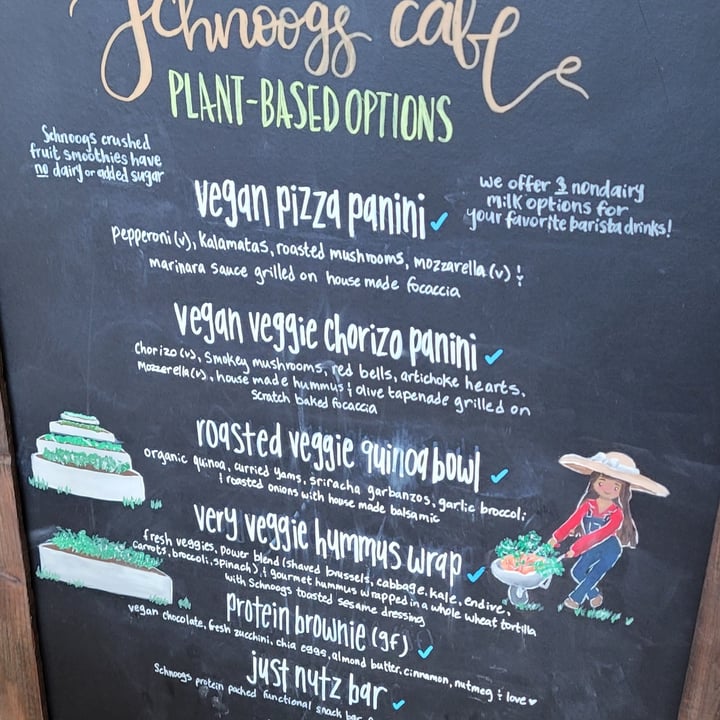 Schnoogs cafe
PLANT-BASED OPTIONS
Schnoogs crushed
fruit smoothies have
no dairy or added sugar
we offer 3 nondairy
milk options for
your favorite barista drinks!
vegan pizza panini
pepperoni (v), Kalamatas, roasted mushrooms, mozzarella (v) &
marinara sauce grilled on house made focaccia
vegan veggie chorizo panini
Chorizo (v), Smokey mushrooms, red bells, artichoke hearts,
Mozzerella (v), house made hummus & olive tapenade grilled on
scratch baked focaccia
roasted veggie quinoa bowl
organic quinoa, curried yams, sriracha garbanzos, garlic broccoli
& roasted onions with house made balsamic
very veggie hummus wrap
fresh veggies, power blend (shaved brussels, cabbage, kale, endive,
carrots, broccoli, spinach), & gourmet hummus wrapped in a whole wheat tortilla
with Schnoogs toasted sesame dressing
protein brownie (gf)
vegan chocolate, fresh zucchini, chia eggs, almond butter, cinnamon, nutmeg & love
just nutz bar
Schnoogs protein packed functional snack bar